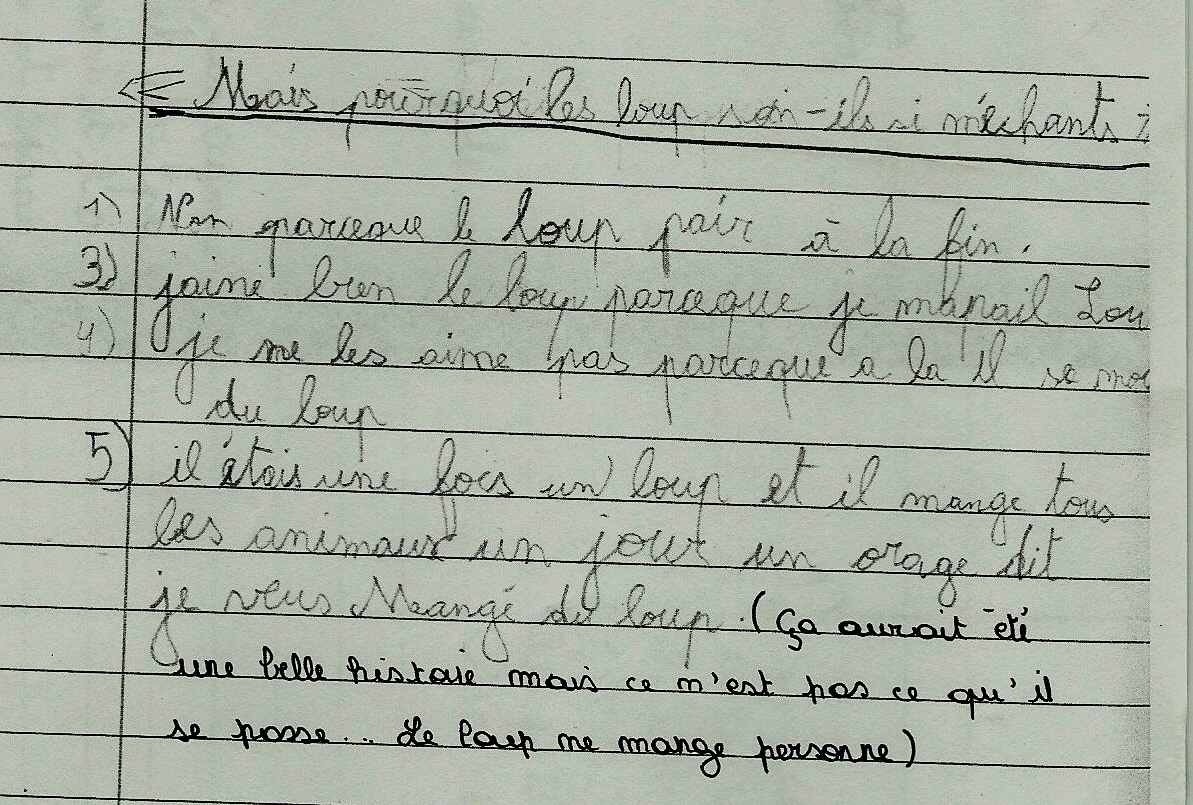 « Mais pourquoi les loup son-ils si méchants ?
1) Non parceque le loup pair à la fin.
3) jaime bien le loup parceque je mapail Lou
4) je me les aime pas parceque a la il se moq
du loup
5) il étais une fois un loup et il mange tous
les animaux un jour un orage dit
je veus Mangé du loup. (Ça aurait été
une belle histoie mais ce n'est pas ce qu'il
se passe... Le loup ne mange personne)